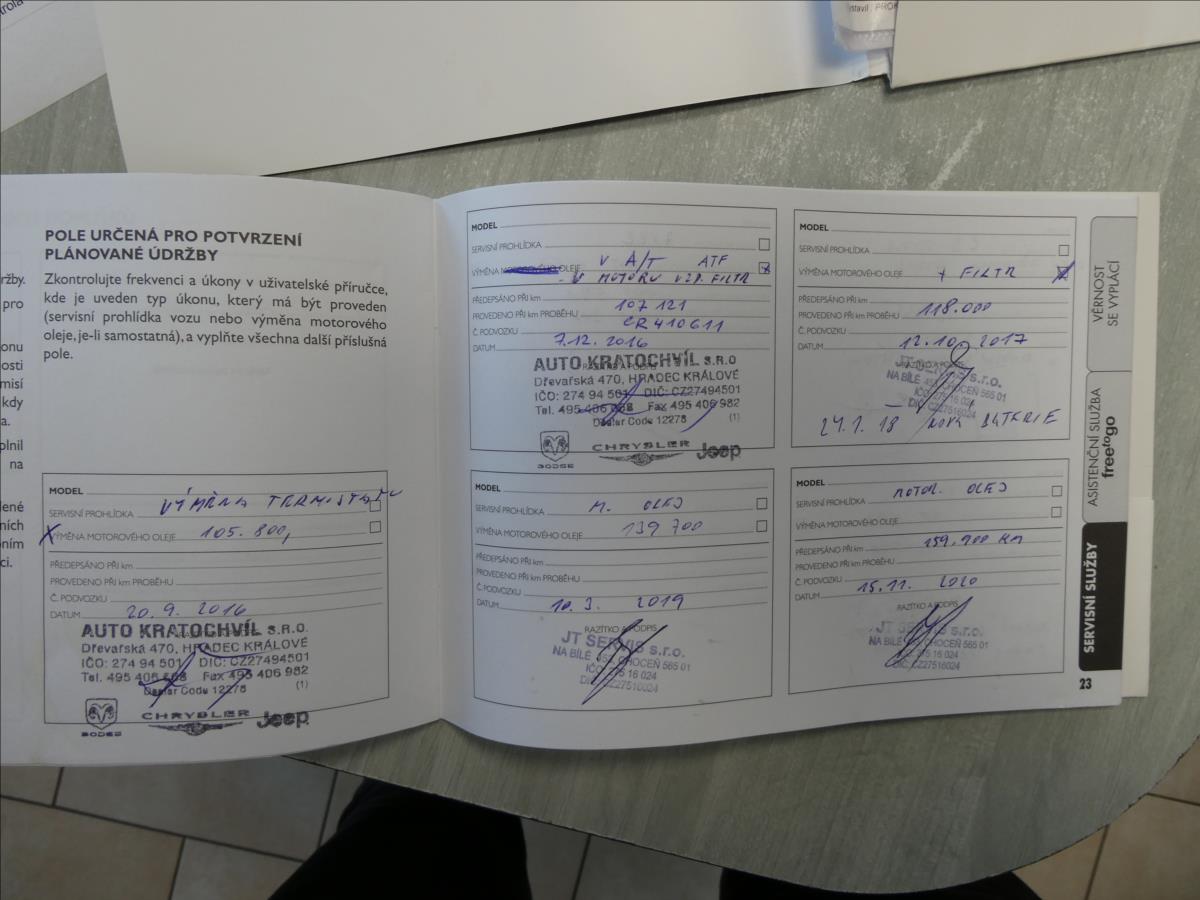 rola
ystavil PROK
POLE URČENÁ PRO POTVRZENÍ
PLÁNOVANÉ ÚDRŽBY
Zkontrolujte frekvenci a úkony v uživatelské příručce,
kde je uveden typ úkonu, který má být proveden
(servisní prohlídka vozu nebo výměna motorového
oleje, je-li samostatná), a vyplňte všechna další příslušná
pole.
pro
onu
osti
misí
kdy
a.
plnil
na
ené
ních
ním
ci.
MODEL
VÝMĚNA TERMISTATU
SERVISNÍ PROHLÍDKA
X VÝMĚNA MOTOROVÉHO OLEJE 105.800,
PŘEDEPSÁNO PŘI km
PROVEDENO PŘI km PROBĚHU
Č. PODVOZKU
DATUM 20.9. 2016
AUTO KRATOCHVÍL S.R.O
Dřevařská 470, HRADEC KRÁLOVÉ
IČO: 274 94 501 DIČ: CZ27494501
Tel. 495 406 Fax 495 406 982
Dealer Code 12278 (1)
DODGE CHRYSLER Jeep
MODEL
SERVISNÍ PROHLÍDKA V A/T ATF
VÝMĚNA MOTOROVÉHO OLEJE - V MOTORU VZD. FILTR X
PŘEDEPSÁNO PŘI km
PROVEDENO PŘI km PROBĚHU 107 121
Č. PODVOZKU CR410611
DATUM 7.12. 2016
AUTO KRATOCHVÍL S.R.O
Dřevařská 470, HRADEC KRÁLOVÉ
IČO: 274 94 501 DIČ: CZ27494501
Tel. 495 406 Fax 495 406 982
Dealer Code 12278 (1)
DODGE CHRYSLER Jeep
MODEL
SERVISNÍ PROHLÍDKA
VÝMĚNA MOTOROVÉHO OLEJE + FILTR X
PŘEDEPSÁNO PŘI km
PROVEDENO PŘI km PROBĚHU 118.000
Č. PODVOZKU
DATUM 12.10 2017
RAZÍTKO A PODPIS
JT SERVIS s.r.o.
NA BÍLÉ 457, CHOCEŇ 565 01
IČO: 275 16 024
DIČ: CZ27516024
24.1. 18 – NOVÁ BATERIE
MODEL
SERVISNÍ PROHLÍDKA M. OLEJ
VÝMĚNA MOTOROVÉHO OLEJE 139 700
PŘEDEPSÁNO PŘI km
PROVEDENO PŘI km PROBĚHU
Č. PODVOZKU
DATUM 10.3. 2019
RAZÍTKO A PODPIS
JT SERVIS s.r.o.
NA BÍLÉ 457, CHOCEŇ 565 01
IČO 275 16 024
DIČ: CZ27516024
MODEL
SERVISNÍ PROHLÍDKA MOTOR. OLEJ
VÝMĚNA MOTOROVÉHO OLEJE
PŘEDEPSÁNO PŘI km 159.900 KM
PROVEDENO PŘI km PROBĚHU
Č. PODVOZKU
DATUM 15.11. 2020
RAZÍTKO A PODPIS
JT SERVIS s.r.o.
NA BÍLÉ 457, CHOCEŇ 565 01
IČO: 275 16 024
DIČ: CZ27516024
VĚRNOST
SE VYPLÁCÍ
ASISTENČNÍ SLUŽBA
freetogo
SERVISNÍ SLUŽBY
23